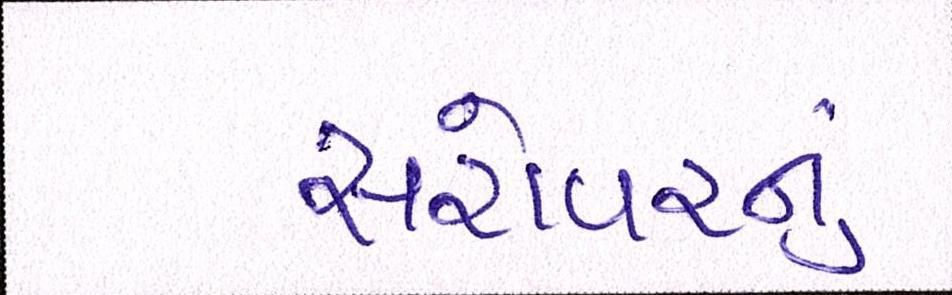 સરોવરનું